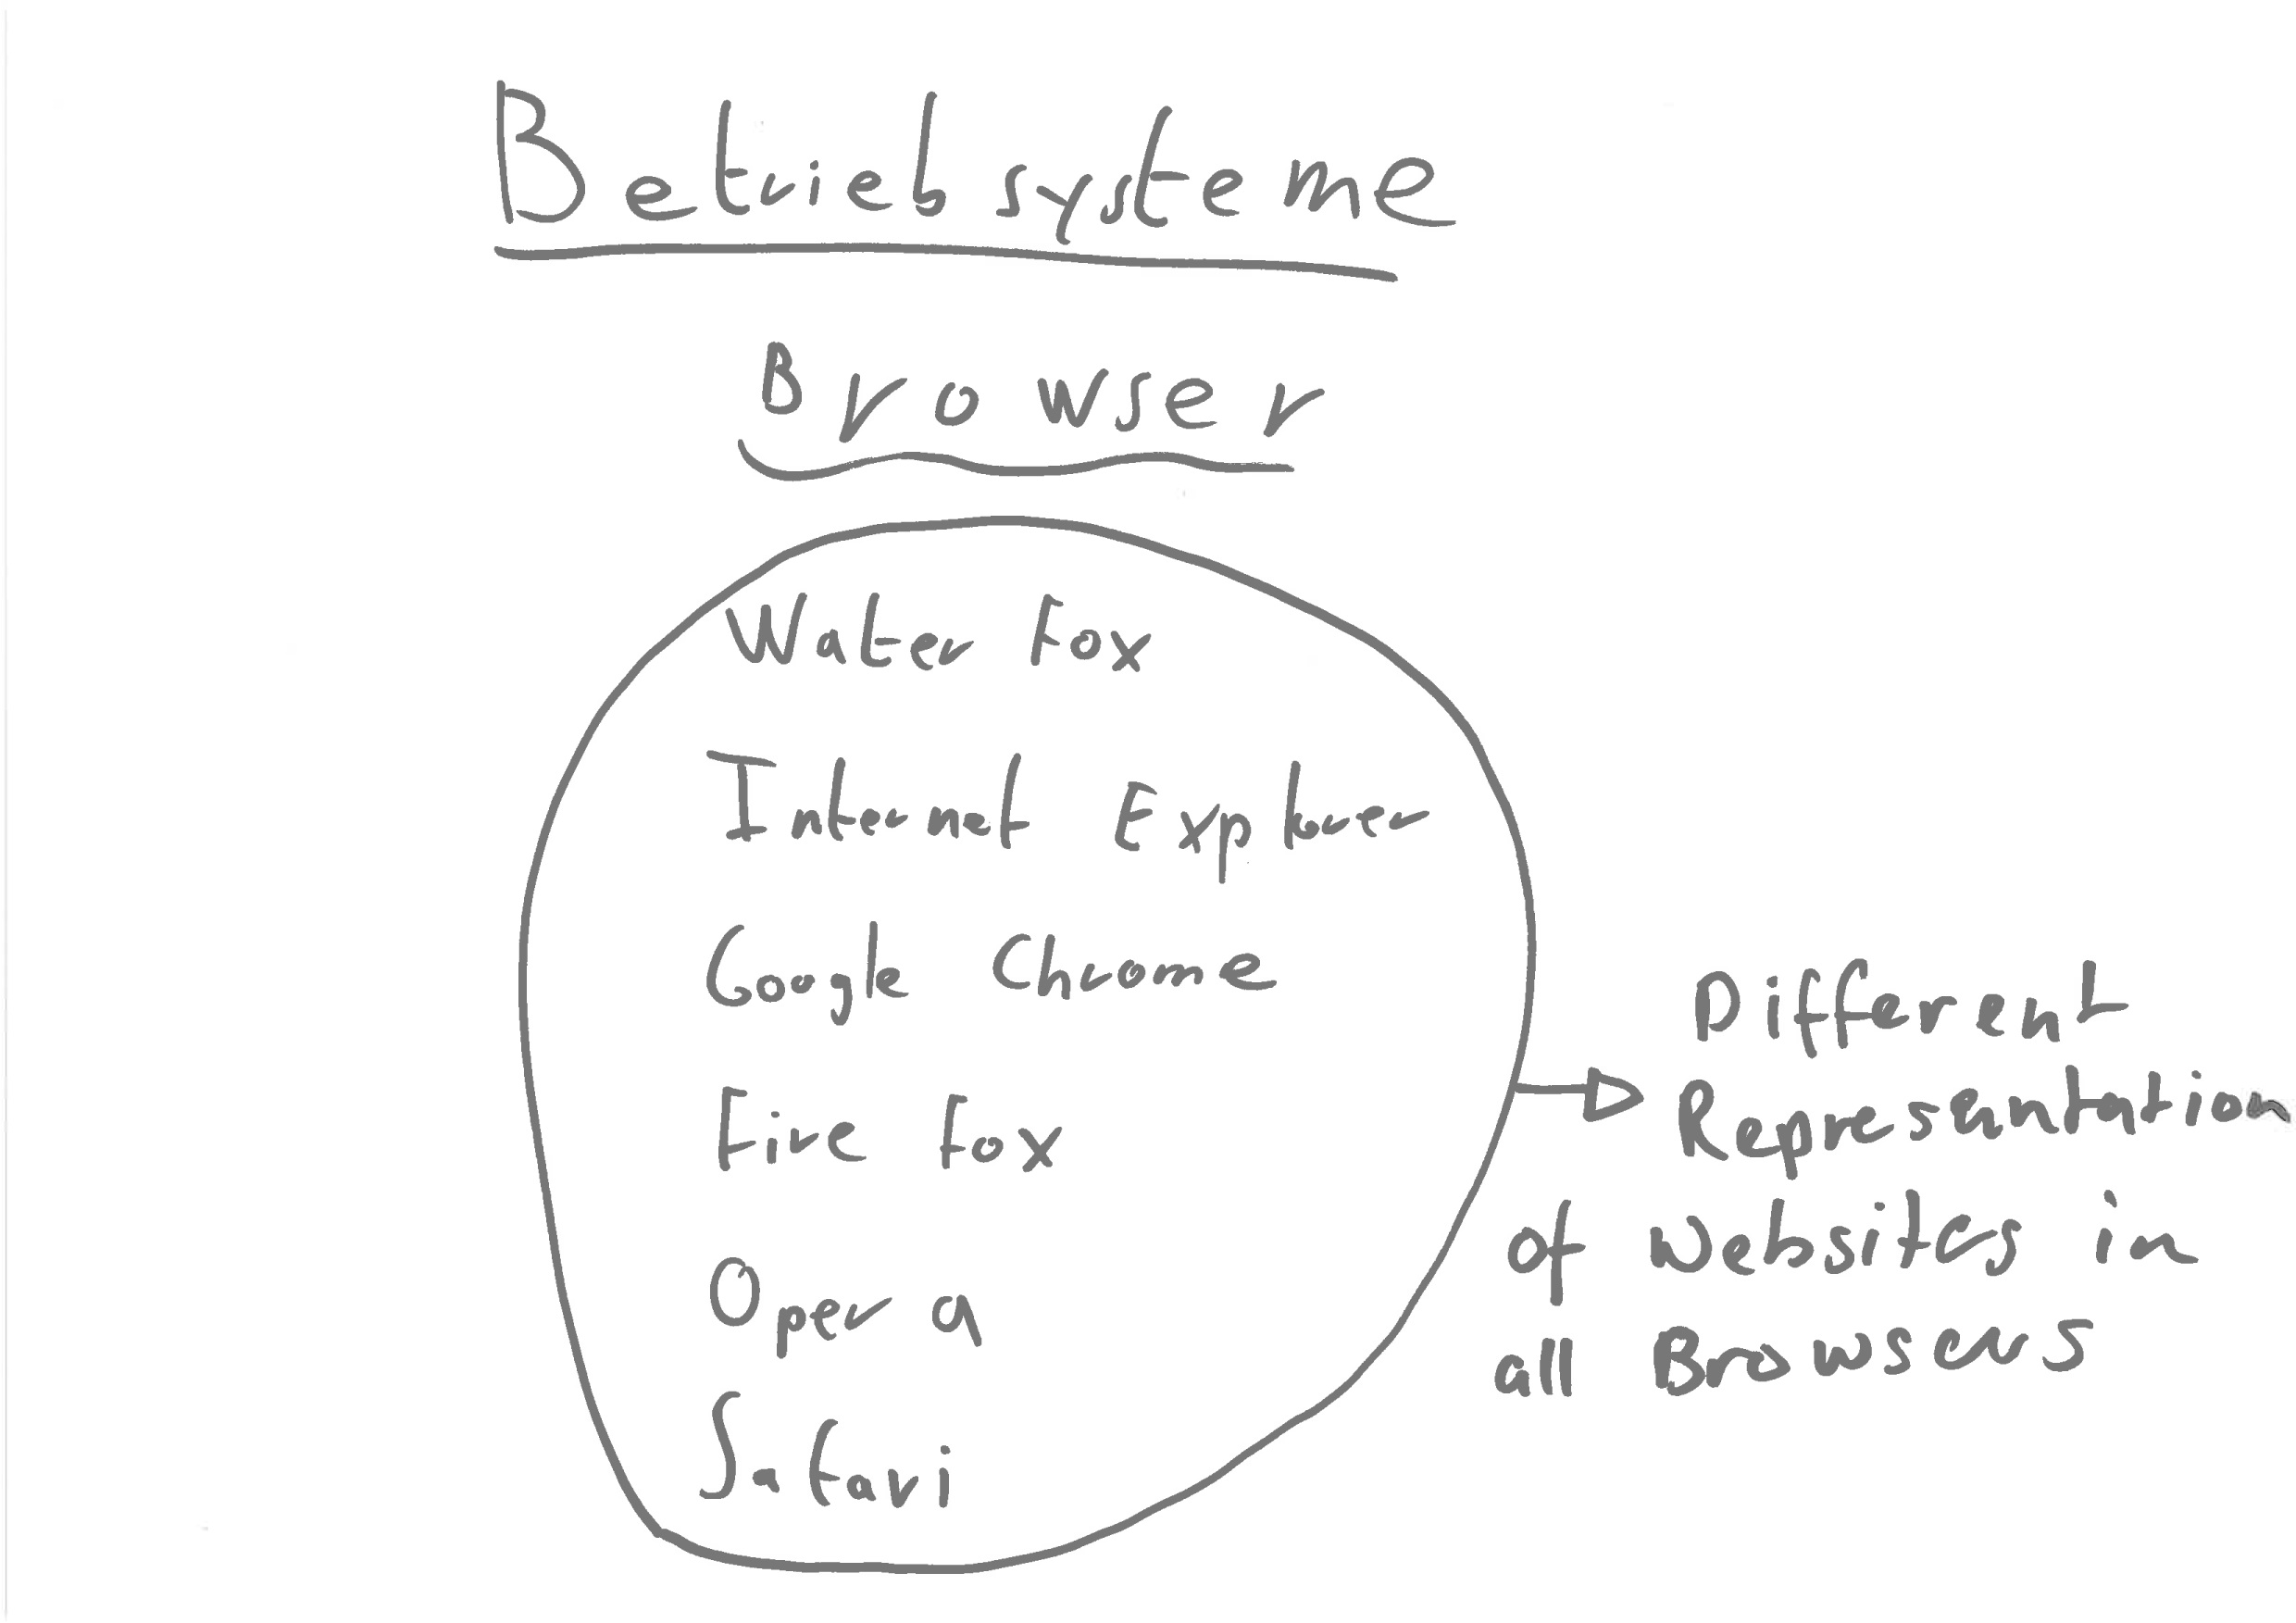 Betriebsysteme
Browser
Water Fox
Internet Explorer
Google Chrome
Fire Fox
Opera
Safari
Different
Representation
of Websites in
all Browsers